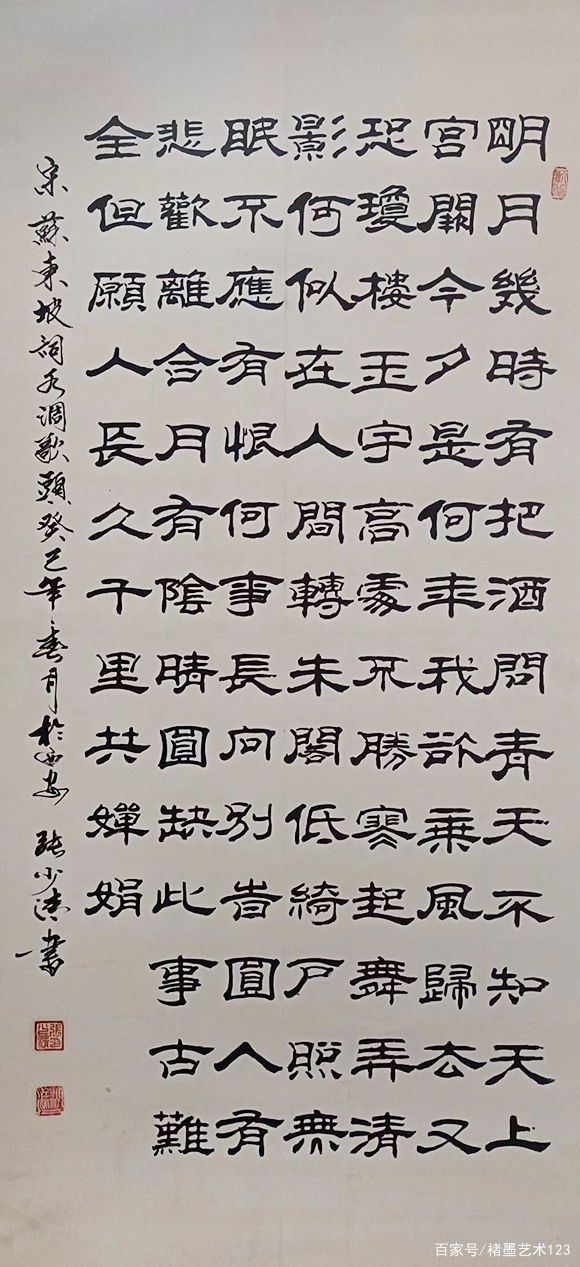 明月幾時有把酒問青天不知天上
宮闕今夕是何年我欲乘風歸去又
恐瓊樓玉宇高處不勝寒起舞弄清
影何似在人間轉朱閣低綺戶照無
眠不應有恨何事長向別時圓人有
悲歡離合月有陰晴圓缺此事古難
全但願人長久千里共嬋娟
宋蘇東坡詞水調歌頭癸巳年春月於西安 張少書
百家号/楮墨艺术123